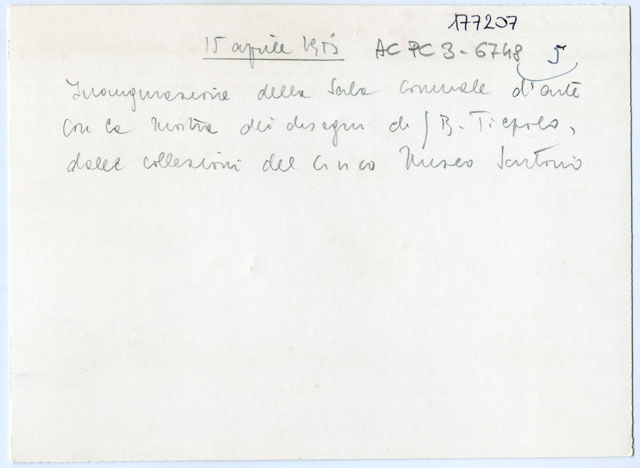 177207
15 aprile 1953 AC PC 3-6748 5
Inaugurazione della Sala Comunale d'arte
con la mostra dei disegni di G B. Tiepolo,
dalle collezioni del civico Museo Sartorio